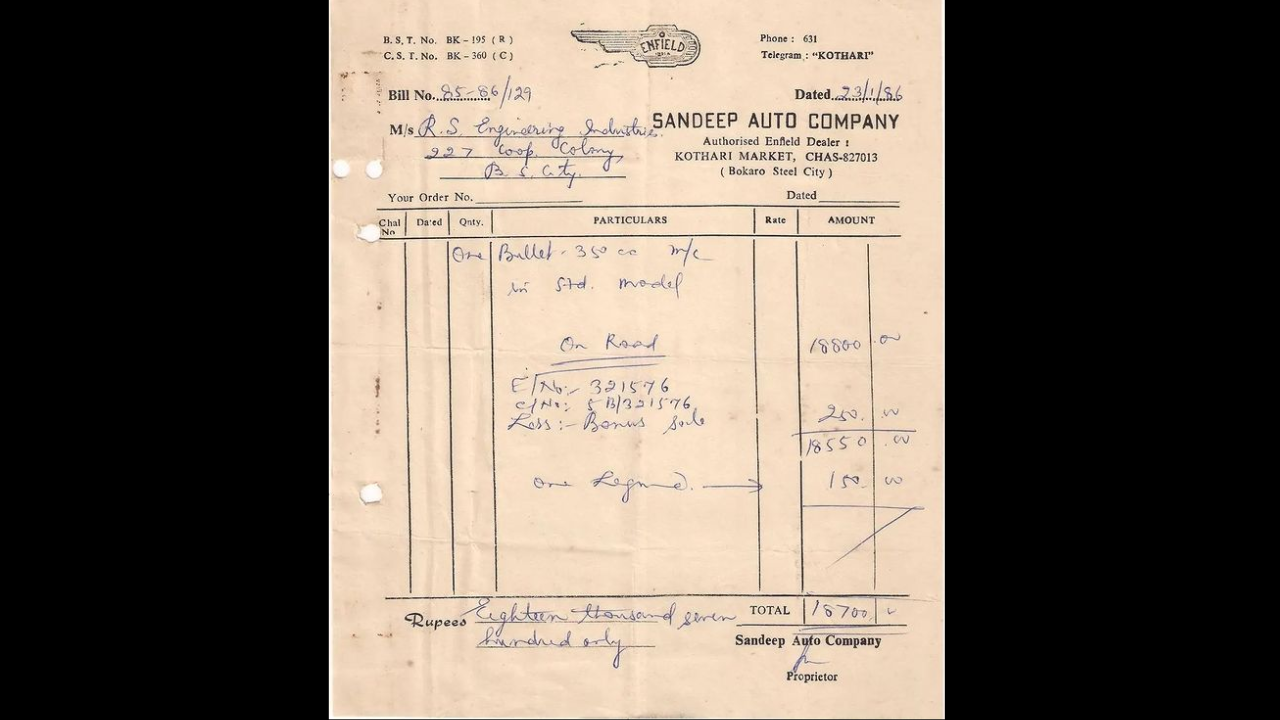 B.S.T. No. BK - 195 ( R )
C.S.T. No. BK - 360 ( C )
ENFIELD
Phone : 631
Telegram : "KOTHARI"
Bill No. 85-86/129
Dated 23/1/86
M/s R.S. Engineering Industries
227 Coop. Colony,
B. S. City.
SANDEEP AUTO COMPANY
Authorised Enfield Dealer :
KOTHARI MARKET, CHAS-827013
( Bokaro Steel City )
Your Order No.
Dated
Chal No Dated Qnty. PARTICULARS Rate AMOUNT
One Bullet - 350 cc m/c
in Std. model
On Road 18800.00
E/No:- 321576
C/No:- 5B/321576
Less :- Bonus 250.00
18550.00
one 150.00
Rupees Eighteen thousand seven
hundred only
TOTAL 18700
Sandeep Auto Company
Proprietor